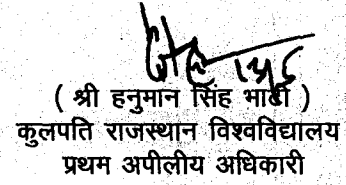 ( श्री हनुमान सिंह भाटी )
कुलपति राजस्थान विश्वविद्यालय
प्रथम अपीलीय अधिकारी